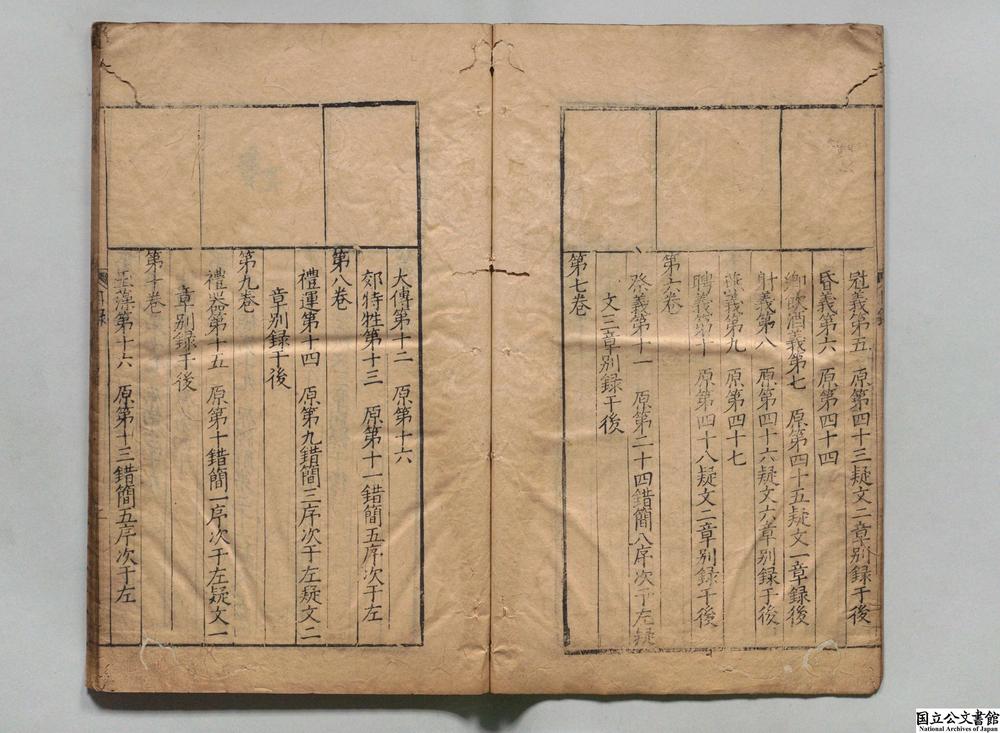 冠義第五　原第四十三疑文二章別録于後
昏義第六　原第四十四
鄉飲酒義第七　原第四十五疑文一章録後
射義第八　原第四十六疑文六章別録于後
燕義第九　原第四十七
聘義第十　原第四十八疑文二章別録于後
第六卷
祭義第十一　原第二十四錯簡八序次于左疑
文三章別録于後
第七卷
大傳第十二　原第十六
郊特牲第十三　原第十一錯簡五序次于左
第八卷
禮運第十四　原第九錯簡三序次于左疑文二
章別録于後
第九卷
禮器第十五　原第十錯簡一序次于左疑文一
章別録于後
第十卷
玉藻第十六　原第十三錯簡五序次于左
国立公文書館
National Archives of Japan